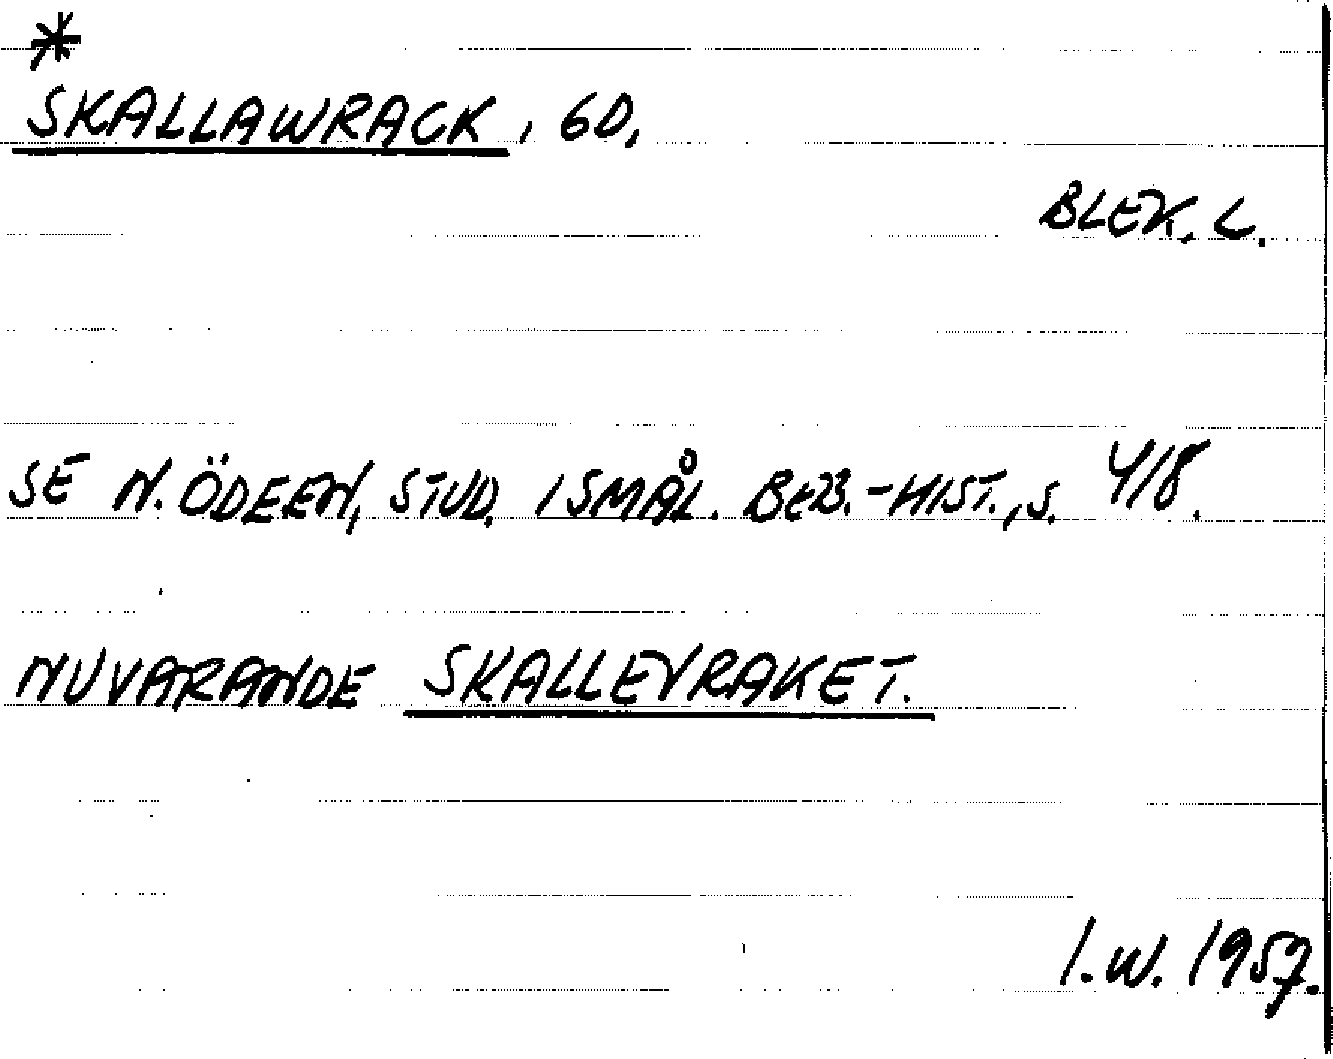 *
SKALLAWRACK, GD,
BLEK. L.
SE N. ÖDEEN, STUD. I SMÅL. BEB.-HIST., S. 418.
NUVARANDE SKALLEVRAKET.
I.W. 1957.